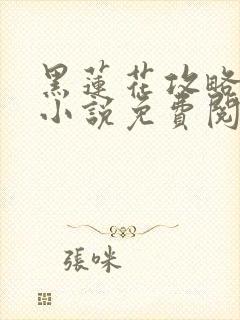 黑蓮花攻略
小說免費閱
張咪